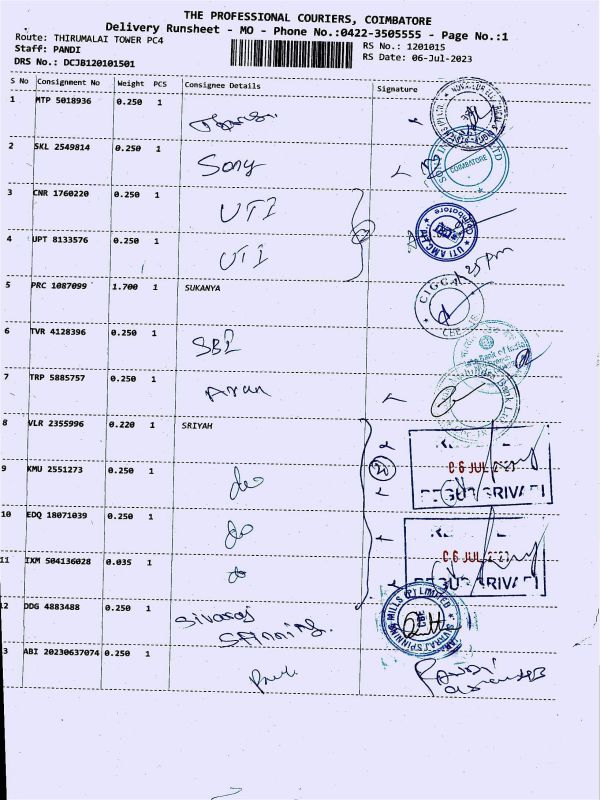 THE PROFESSIONAL COURIERS, COIMBATORE
Delivery Runsheet - MO - Phone No.:0422-3505555 - Page No.:1
Route: THIRUMALAI TOWER PC4 RS No.: 1201015
Staff: PANDI RS Date: 06-Jul-2023
DRS No.: DCJB120101501
S No Consignment No Weight PCS Consignee Details Signature
1 MTP 5018936 0.250 1
2 SKL 2549814 0.250 1 Sony COIMBATORE
3 CNR 1760220 0.250 1 UTI
4 UPT 8133576 0.250 1 UTI UTI AMC
5 PRC 1087099 1.700 1 SUKANYA
6 TVR 4128396 0.250 1 SBI
7 TRP 5885757 0.250 1
8 VLR 2355996 0.220 1 SRIYAH
06 JUL 2023
9 KMU 2551273 0.250 1 do
10 EDQ 18071039 0.250 1 do
06 JUL
11 IXM 504136028 0.035 1 do
12 DDG 4883488 0.250 1 Sivaraj Spinning. SIVARAJ SPINNING MILLS (P) LIMITED
3 ABI 20230637074 0.250 1